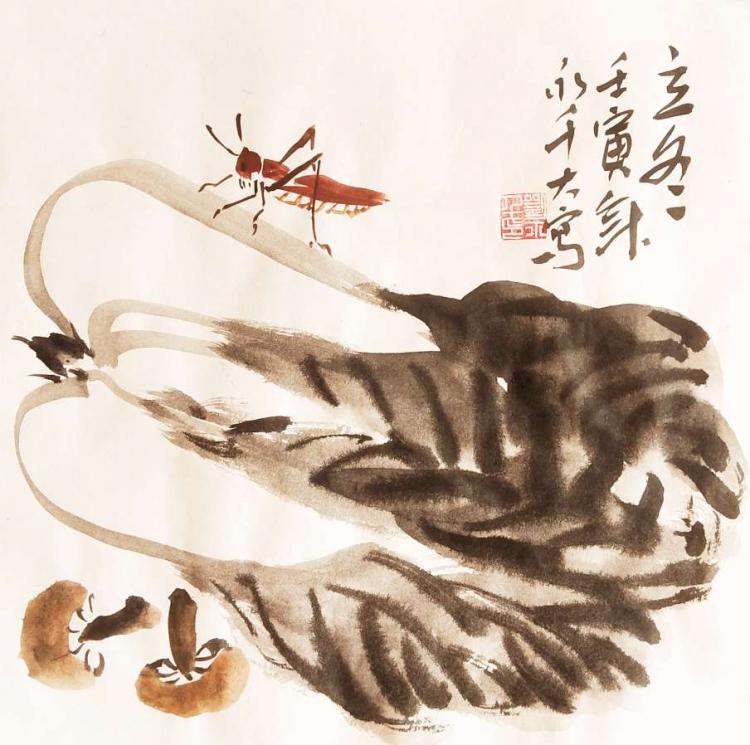 立冬
壬寅年
永千大写